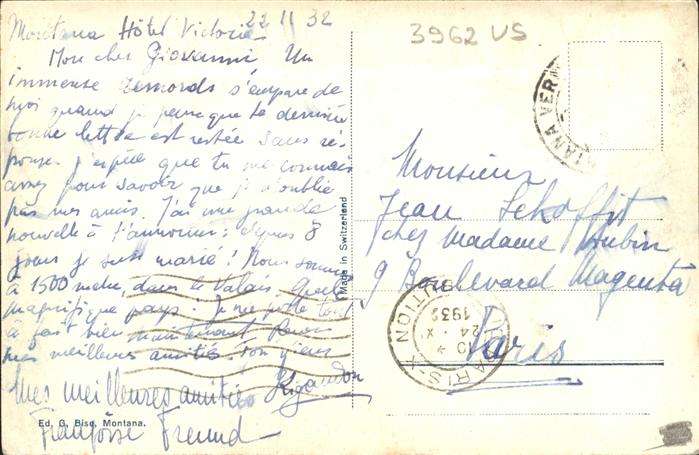 22 11 32
Montana Hôtel Victoria
Mon cher Giovanni Un
immense remords s'empare de
moi quand je pense que ta dernière
bonne lettre est restée sans ré-
ponse. J'espère que tu me connais
assez pour savoir que je n'oublie
pas mes amis. J'ai une grande
nouvelle à t'annoncer: depuis 8
jours je suis marié! Nous sommes
à 1500 metre, dans le Valais. Quel
magnifique pays. Je me
à fait bien maintenant
mes meilleures amitiés. ton vieux
Mes meilleures amitiés
Françoise Freund
Ed. G. Bise, Montana.
Made in Switzerland
3962 VS
MONTANA VERMALA
Monsieur
Jean
chez Madame Aubin
9 Boulevard Magenta
Paris
PARIS-X
DISTRIBUTION
10 *
24 - X
193